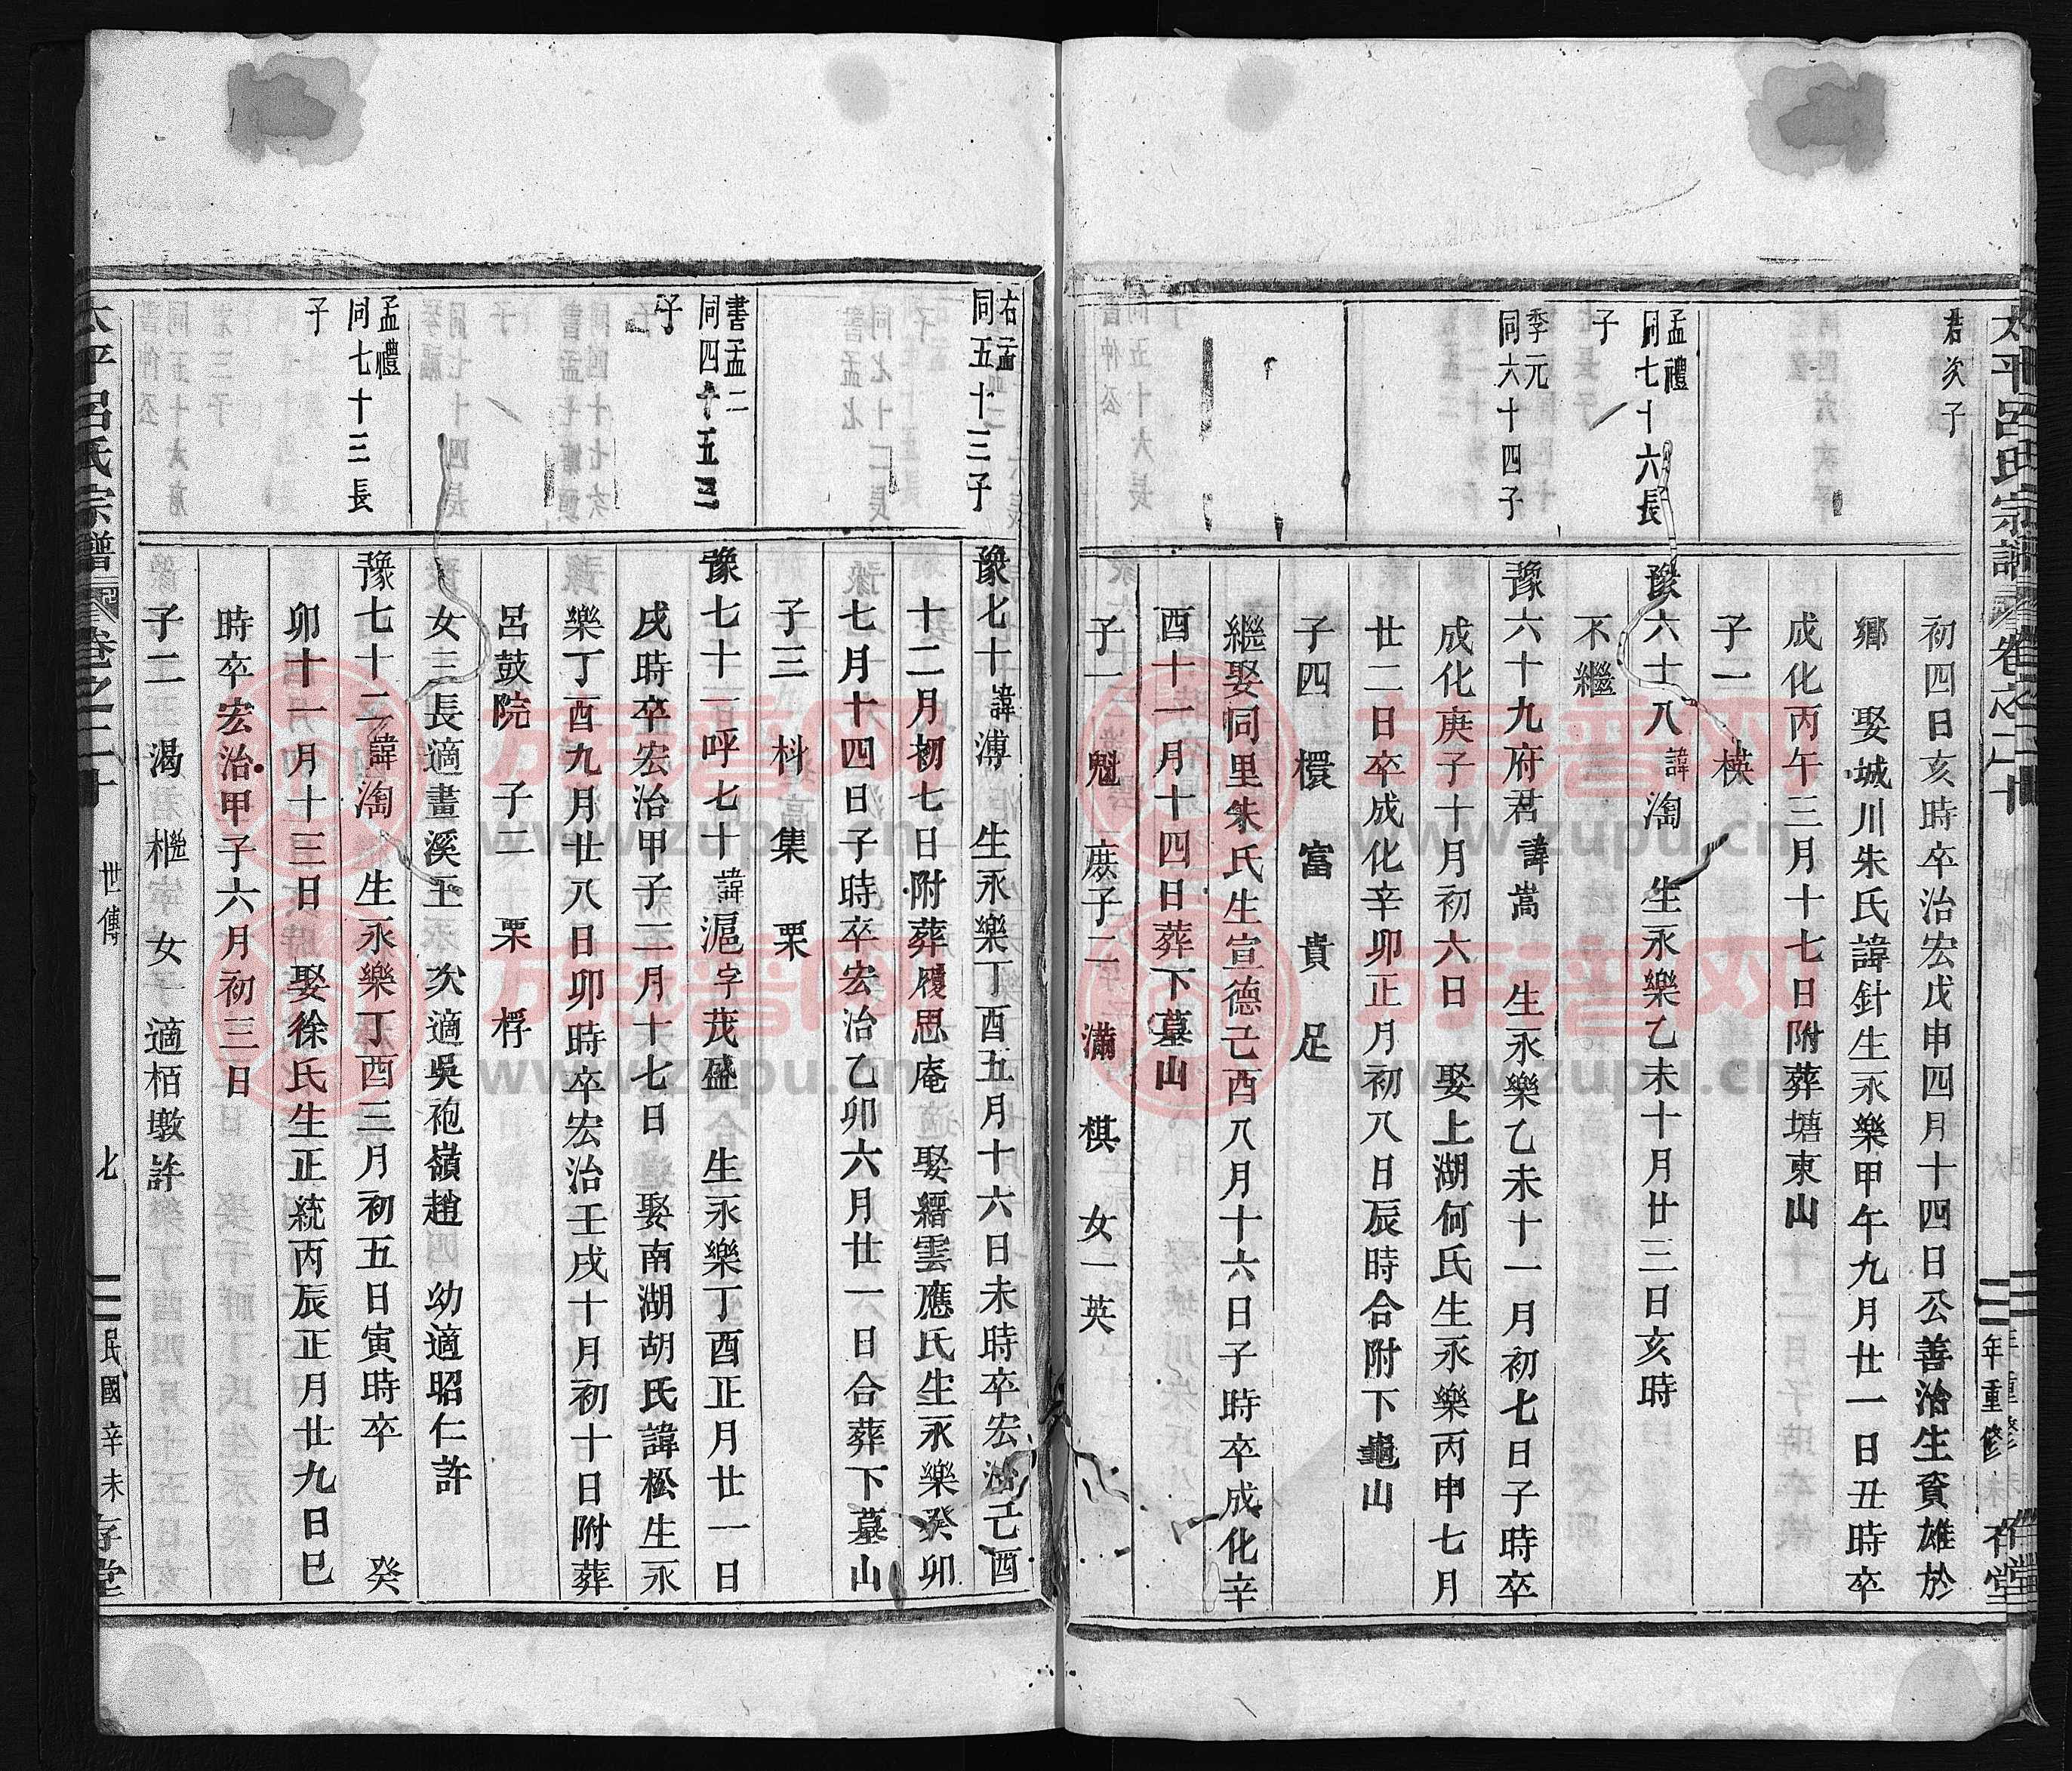 太平呂氏宗譜
卷之二十
年重修
君次子
初四日亥時卒治宏戊申四月十四日公善治生資雄於
鄉 娶城川朱氏諱針生永樂甲午九月廿一日丑時卒
成化丙午三月十七日附葬塘東山
子一 模
孟禮
同七十六長
子
豫六十八諱淘 生永樂乙未十月廿三日亥時
不繼
季元
同六十四子
豫六十九府君諱嵩 生永樂乙未十一月初七日子時卒
成化庚子十月初六日 娶上湖何氏生永樂丙申七月
廿二日卒成化辛卯正月初八日辰時合附下龜山
子四 檈 富 貴 足
繼娶同里朱氏生宣德己酉八月十六日子時卒成化辛
酉十一月十四日葬下墓山
子一 魁 庶子二 滿 棋 女一英
右孟
同五十三子
豫七十諱溥 生永樂丁酉五月十六日未時卒宏治己酉
十二月初七日附葬履思庵 娶縉雲應氏生永樂癸卯
七月十四日子時卒宏治乙卯六月廿一日合葬下墓山
子三 枓 集 栗
書孟二
同四十五三
子
豫七十一呼七十諱滬字茂盛 生永樂丁酉正月廿一日
戌時卒宏治甲子二月十七日 娶南湖胡氏諱松生永
樂丁酉九月廿八日卯時卒宏治壬戌十月初十日附葬
呂鼓院 子二 栗 桴
女三長適畫溪王 次適吳袍嶺趙 幼適昭仁許
孟禮
同七十三長
子
豫七十二諱淘 生永樂丁酉三月初五日寅時卒 癸
卯十一月十三日 娶徐氏生正統丙辰正月廿九日巳
時卒宏治甲子六月初三日
子二 渴 㰟 女一適栢墩許
太平呂氏宗譜
卷之二十
世傳
七
民國辛未
存堂
族谱网
www.zupu.cn
族谱网
www.zupu.cn
族谱网
www.zupu.cn
族谱网
www.zupu.cn